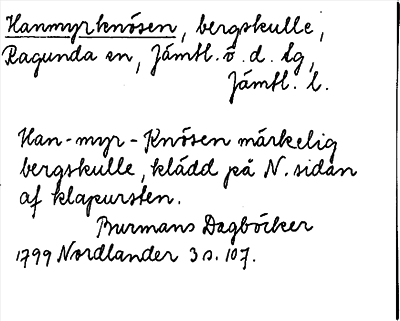 Hanmyrknösen, bergskulle,
Ragunda sn, Jämtl. ö. d. lg,
Jämtl. l.
Han-myr-Knösen märkelig
bergskulle, klädd på N. sidan
af klapursten.
Burmans Dagböcker
1799 Nordlander 3 s. 107.